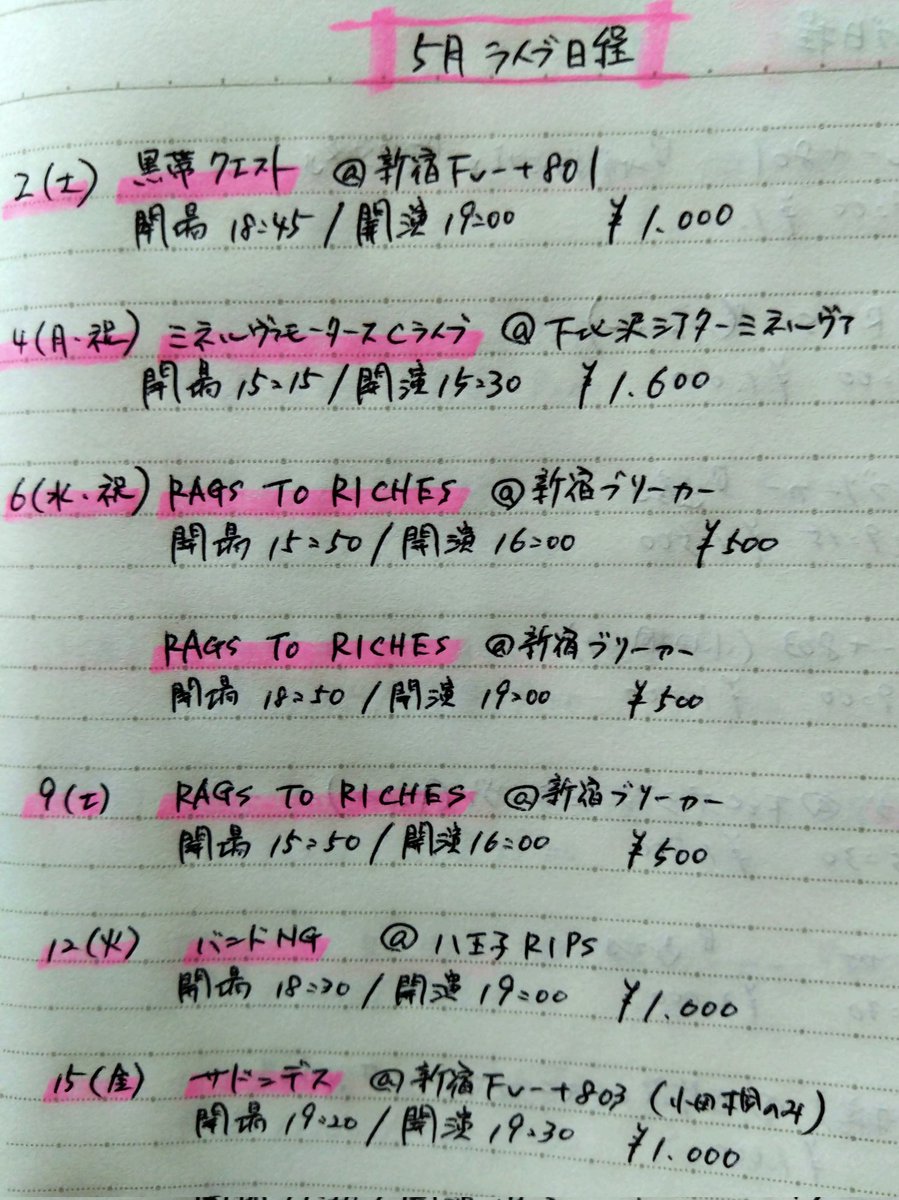 5月 ライブ日程
2(土) 黒帯クエスト @新宿Fu-+801
開場 18:45 / 開演 19:00 ¥1.000
4(月・祝) ミネルヴァモータースCライブ @下北沢シアターミネルヴァ
開場 15:15 / 開演 15:30 ¥1.600
6(水・祝) RAGS TO RICHES @新宿ブリーカー
開場 15:50 / 開演 16:00 ¥500
RAGS TO RICHES @新宿ブリーカー
開場 18:50 / 開演 19:00 ¥500
9(土) RAGS TO RICHES @新宿ブリーカー
開場 15:50 / 開演 16:00 ¥500
12(火) バンドNG @八王子RIPS
開場 18:30 / 開演 19:00 ¥1.000
15(金) サドンデス @新宿Fu-+803 (小田桐のみ)
開場 19:20 / 開演 19:30 ¥1.000